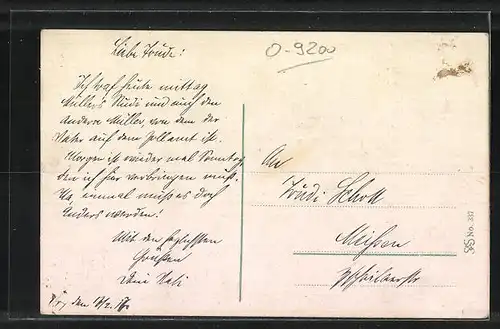 Liebe Trude!
O-9200
Ich traf heute mittag
Müller's Rudi und auch den
anderen Müller, von dem der
Vater auf dem Zollamt ist.
Morgen ist wieder mal Sonntag
den ich hier verbringen muß.
Na, einmal muß es doch
anders werden!
Mit den herzlichsten
Grüßen
Dein
den 16/2. 18.
An
Trudi Schott
Meißen
No. 337